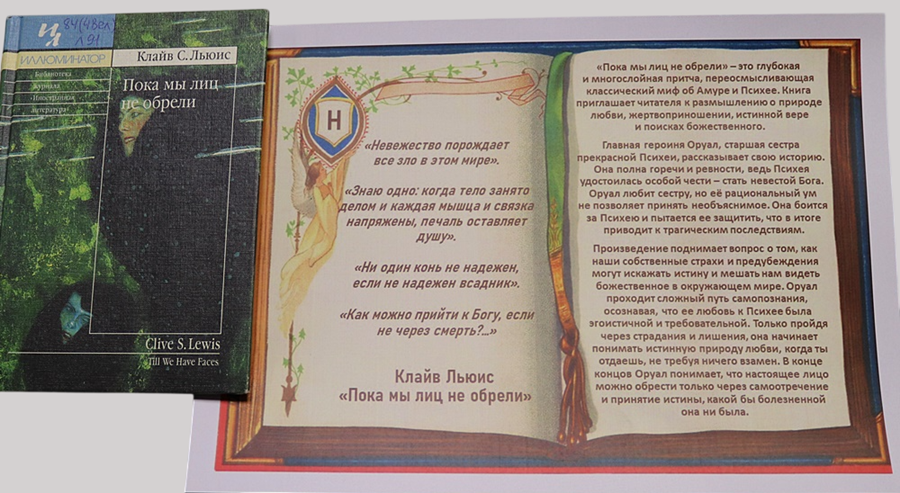 84(4Вел)
Л 91
ИЛ
ИЛЛЮМИНАТОР
Библиотека
журнала
«Иностранная
литература»
Клайв С. Льюис
Пока мы лиц
не обрели
Clive S. Lewis
Till We Have Faces
Н
«Невежество порождает
все зло в этом мире».
«Знаю одно: когда тело занято
делом и каждая мышца и связка
напряжены, печаль оставляет
душу».
«Ни один конь не надежен,
если не надежен всадник».
«Как можно прийти к Богу, если
не через смерть?...»
Клайв Льюис
«Пока мы лиц не обрели»
«Пока мы лиц не обрели» – это глубокая
и многослойная притча, переосмысливающая
классический миф об Амуре и Психее. Книга
приглашает читателя к размышлению о природе
любви, жертвоприношении, истинной вере
и поисках божественного.
Главная героиня Оруал, старшая сестра
прекрасной Психеи, рассказывает свою историю.
Она полна горечи и ревности, ведь Психея
удостоилась особой чести – стать невестой Бога.
Оруал любит сестру, но её рациональный ум
не позволяет принять необъяснимое. Она боится
за Психею и пытается ее защитить, что в итоге
приводит к трагическим последствиям.
Произведение поднимает вопрос о том, как
наши собственные страхи и предубеждения
могут искажать истину и мешать нам видеть
божественное в окружающем мире. Оруал
проходит сложный путь самопознания,
осознавая, что ее любовь к Психее была
эгоистичной и требовательной. Только пройдя
через страдания и лишения, она начинает
понимать истинную природу любви, когда ты
отдаешь, не требуя ничего взамен. В конце
концов Оруал понимает, что настоящее лицо
можно обрести только через самоотречение
и принятие истины, какой бы болезненной
она ни была.